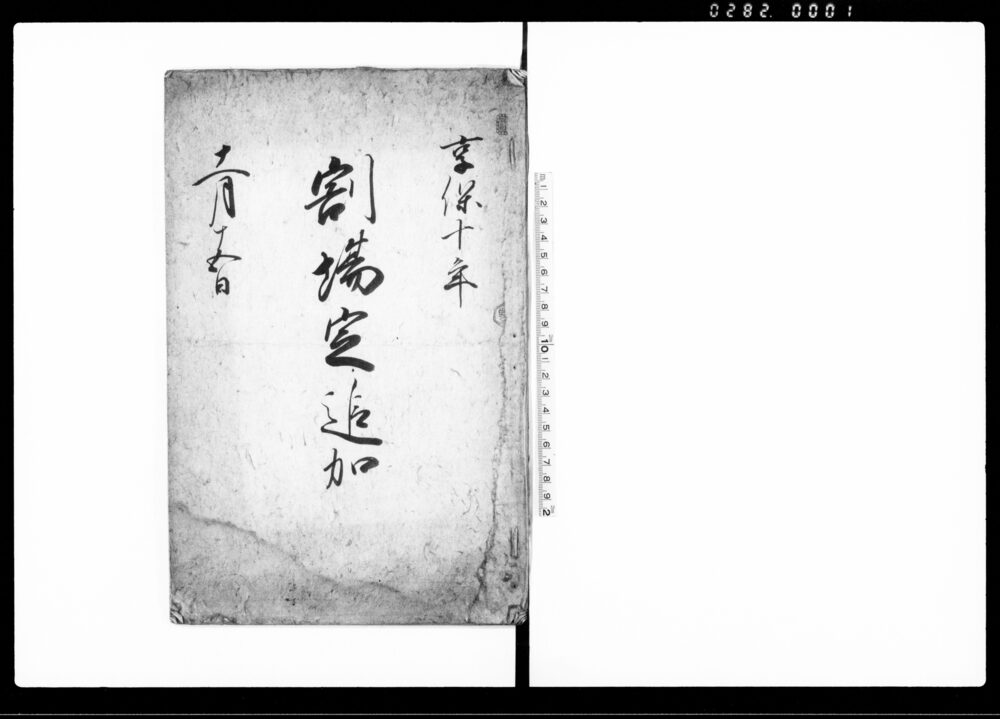 0282. 0001
享保十年
割場定追加
十一月十五日
m 1 2 3 4 5 6 7 8 9 10 1 2 3 4 5 6 7 8 9 2